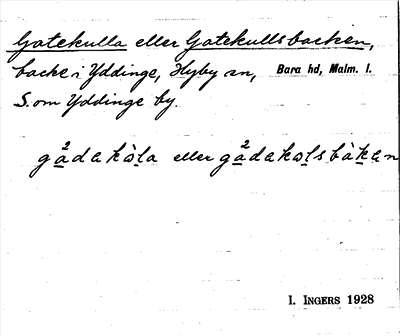 Gatekulla eller Gatekullsbacken,
backe i Yddinge, Hyby sn, Bara hd, Malm. l.
S. om Yddinge by.
gada kòla eller gada kolsbàkan
I. INGERS 1928